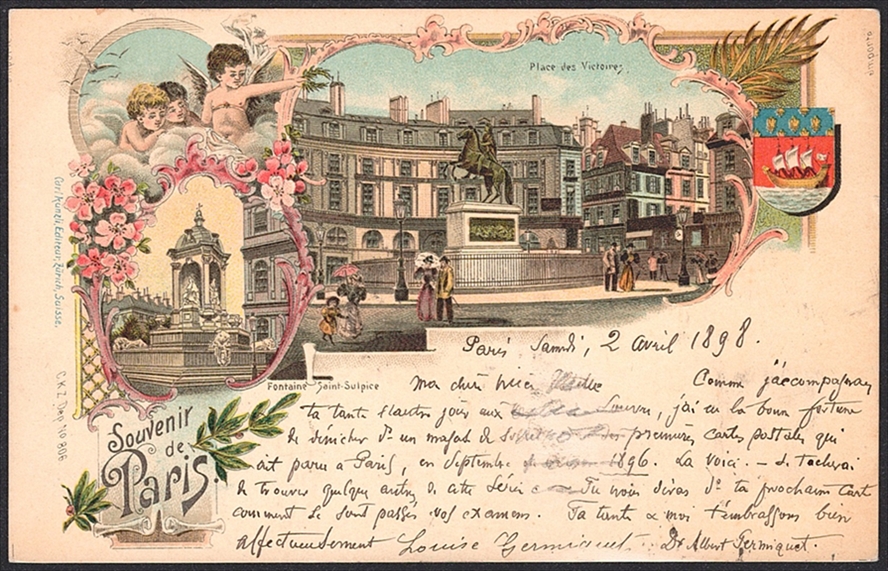 Place des Victoires
Carl Künzli, Editeur, Zürich, Suisse.
C.K.Z. Dep. No 806
Fontaine Saint-Sulpice
Souvenir
de
Paris
Paris Samedi, 2 avril 1898.
Ma chère nièce
Comme j'accompagnais
ta tante l'autre jour aux Louvre, j'ai eu la bonne fortune
de dénicher ds un magas de des premières cartes postales qui
ait paru à Paris, en Septembre 1896. La voici. – Je tacherai
de trouver quelques autres de cette série Tu nous diras ds ta prochaine carte
comment se sont passés vos examens. Ta tante & moi t'embrassons bien
affectueusement Louise Germiquet. Dr Albert Germiquet.